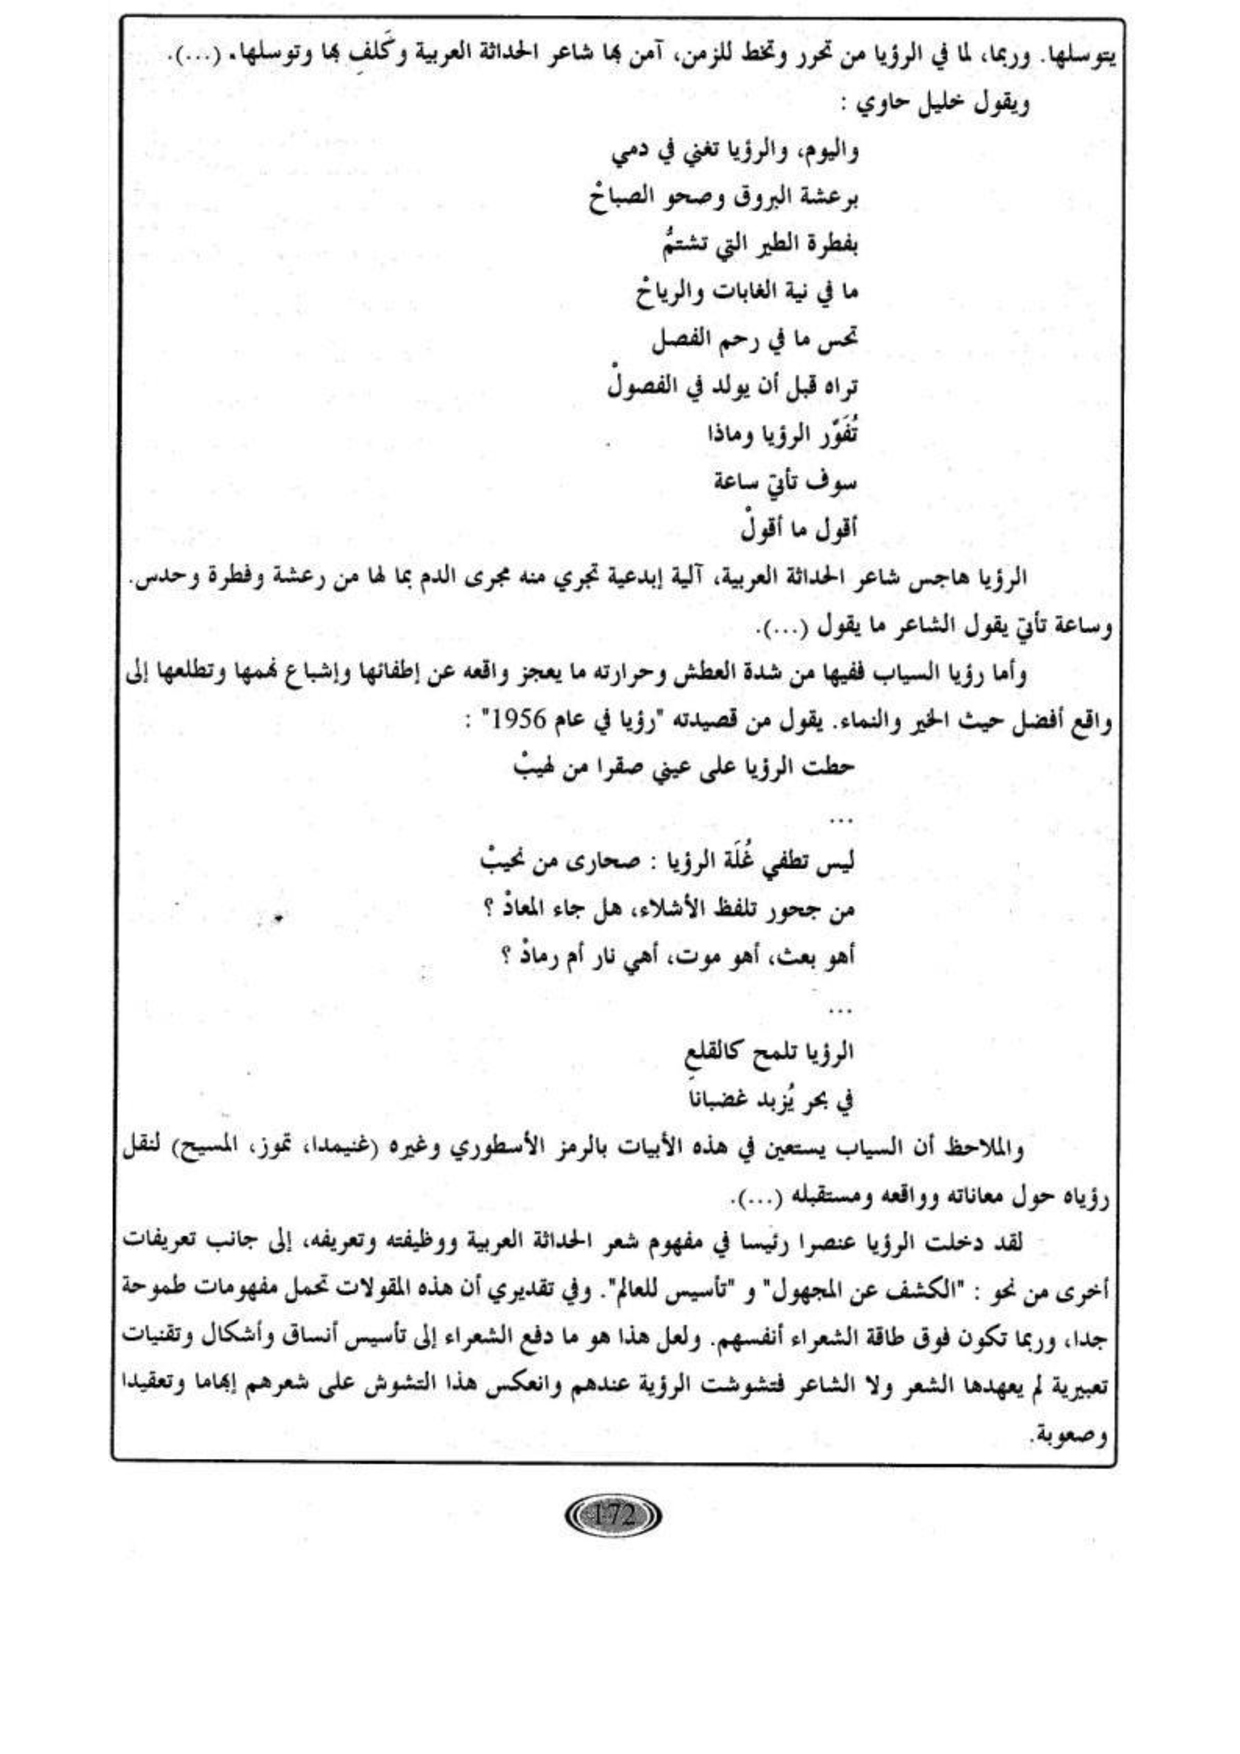 يتوسلها. وربما، لما في الرؤيا من تحرر وتخط للزمن، آمن بها شاعر الحداثة العربية وكَلف بها وتوسلها. (...).
ويقول خليل حاوي :
واليوم، والرؤيا تغني في دمي
برعشة البروق وصحو الصباحْ
بفطرة الطير التي تشتمُّ
ما في نية الغابات والرياحْ
تحس ما في رحم الفصل
تراه قبل أن يولد في الفصولْ
تُفَوّر الرؤيا وماذا
سوف تأتي ساعة
أقول ما أقولْ
الرؤيا هاجس شاعر الحداثة العربية، آلية إبدعية تجري منه مجرى الدم بما لها من رعشة وفطرة وحدس.
وساعة تأتي يقول الشاعر ما يقول (...).
وأما رؤيا السياب ففيها من شدة العطش وحرارته ما يعجز واقعه عن إطفائها وإشباع نهمها وتطلعها إلى
واقع أفضل حيث الخير والنماء. يقول من قصيدته "رؤيا في عام 1956" :
حطت الرؤيا على عيني صقرا من لهيبْ
...
ليس تطفي غُلَة الرؤيا : صحارى من نحيبْ
من جحور تلفظ الأشلاء، هل جاء المعادْ ؟
أهو بعث، أهو موت، أهي نار أم رمادْ ؟
...
الرؤيا تلمح كالقلعِ
في بحر يُزبد غضبانا
والملاحظ أن السياب يستعين في هذه الأبيات بالرمز الأسطوري وغيره (غنيمدا، تموز، المسيح) لنقل
رؤياه حول معاناته وواقعه ومستقبله (...).
لقد دخلت الرؤيا عنصرا رئيسا في مفهوم شعر الحداثة العربية ووظيفته وتعريفه، إلى جانب تعريفات
أخرى من نحو : "الكشف عن المجهول" و "تأسيس للعالم". وفي تقديري أن هذه المقولات تحمل مفهومات طموحة
جدا، وربما تكون فوق طاقة الشعراء أنفسهم. ولعل هذا هو ما دفع الشعراء إلى تأسيس أنساق وأشكال وتقنيات
تعبيرية لم يعهدها الشعر ولا الشاعر فتشوشت الرؤية عندهم وانعكس هذا التشوش على شعرهم إبهاما وتعقيدا
وصعوبة.
172